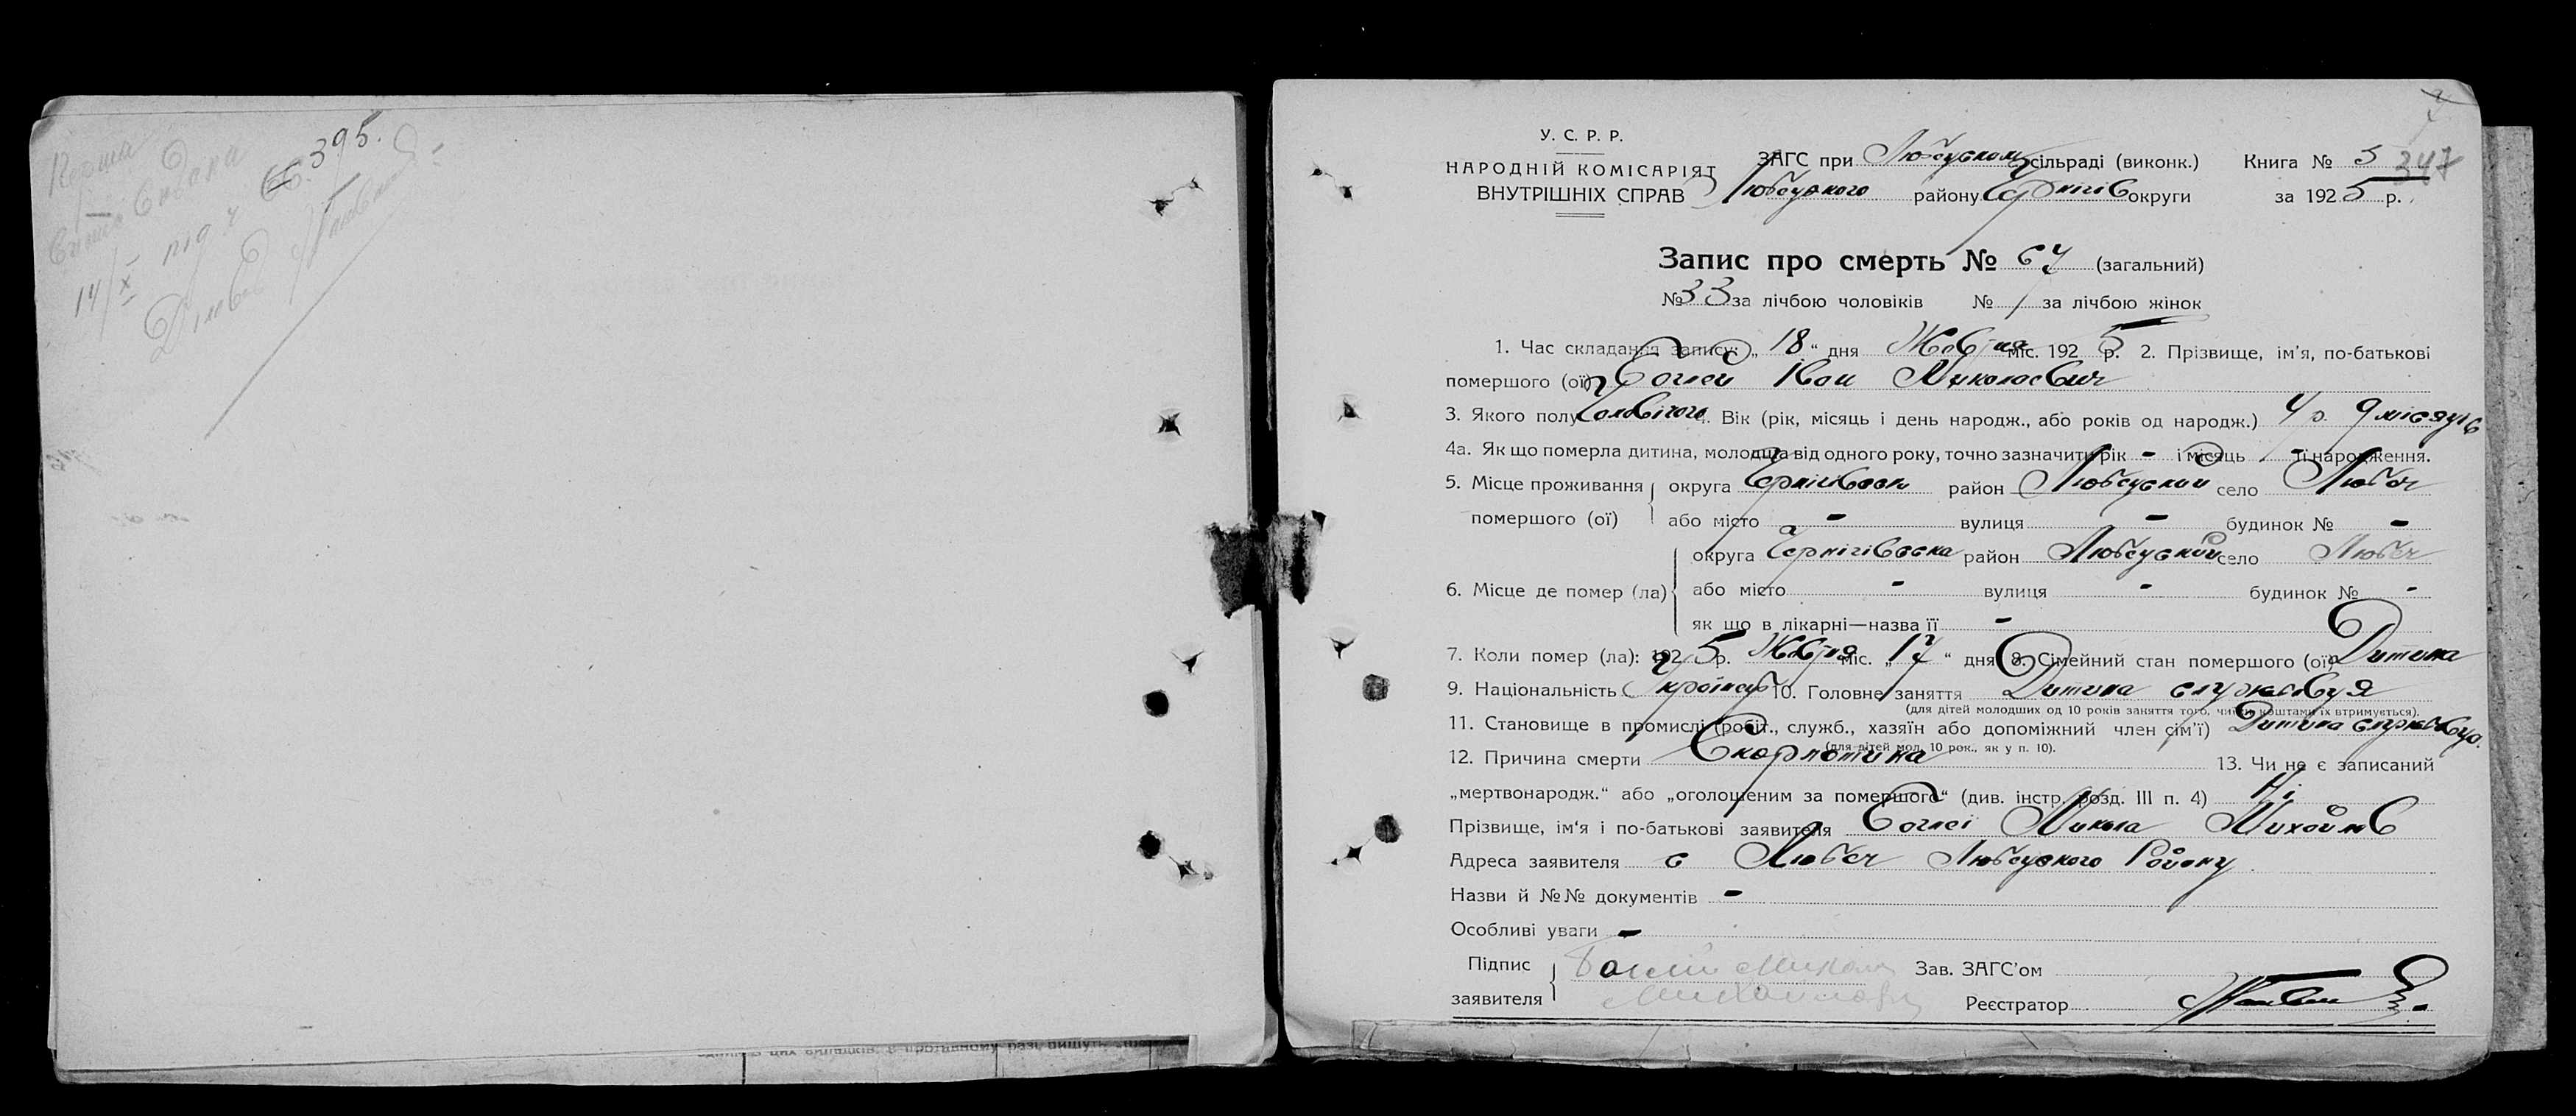 395.
У. С. Р. Р.
НАРОДНІЙ КОМІСАРІЯТ
ВНУТРІШНІХ СПРАВ
ЗАГС при Любецьком сільраді (виконк.)
Любецького району Чернігів округи
Книга № 5
347
за 1925 р.
Запис про смерть № 67 (загальний)
№ 33 за лічбою чоловіків № за лічбою жінок
1. Час складання запису: „ 18 “ дня Жовтня міс. 1925 р. 2. Прізвище, ім'я, по-батькові
помершого (ої) Іван Миколаєвич
3. Якого полу Чоловічого 4. Вік (рік, місяць і день народж., або років од народж.) 4 р. 9 місяців
4а. Як що померла дитина, молодша від одного року, точно зазначити рік - і місяць - її народження.
5. Місце проживання помершого (ої) округа Чернігівськ район Любецький село Любеч
або місто - вулиця - будинок № -
6. Місце де помер (ла) округа Чернігівська район Любецький село Любеч
або місто - вулиця - будинок № -
як що в лікарні—назва її -
7. Коли помер (ла): 1925 р. Жовтня міс. „ 17 “ дня 8. Сімейний стан помершого (ої) Дитина
9. Національність Українець 10. Головне заняття Дитина службовця
(для дітей молодших од 10 років заняття того, чиїми коштами їх втримується).
11. Становище в промислі (робіт., служб., хазяїн або допоміжний член сім'ї) Дитина службовця.
(для дітей мол. 10 рок., як у п. 10).
12. Причина смерти Скарлатина 13. Чи не є записаний
„мертвонародж.“ або „оголошеним за помершого“ (див. інстр. розд. III п. 4) Ні
Прізвище, ім'я і по-батькові заявителя Микола Михайлов
Адреса заявителя с Любеч Любецького Району
Назви й №№ документів -
Особливі уваги -
Підпис заявителя
Зав. ЗАГС'ом
Реєстратор